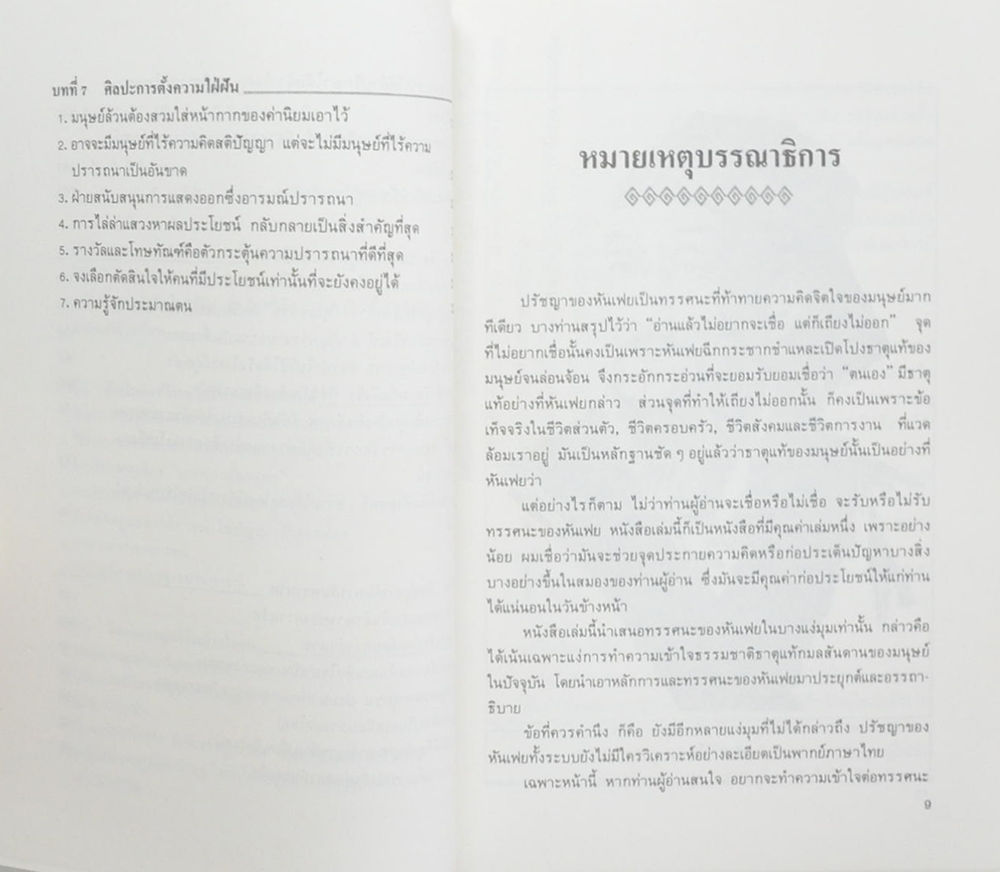 บทที่ 7 ศิลปะการตั้งความใฝ่ฝัน
1. มนุษย์ล้วนต้องสวมใส่หน้ากากของค่านิยมเอาไว้
2. อาจจะมีมนุษย์ที่ไร้ความคิดสติปัญญา แต่จะไม่มีมนุษย์ที่ไร้ความ
ปรารถนาเป็นอันขาด
3. ฝ่ายสนับสนุนการแสดงออกซึ่งอารมณ์ปรารถนา
4. การไล่ล่าแสวงหาผลประโยชน์ กลับกลายเป็นสิ่งสำคัญที่สุด
5. รางวัลและโทษทัณฑ์คือตัวกระตุ้นความปรารถนาที่ดีที่สุด
6. จงเลือกตัดสินใจให้คนที่มีประโยชน์เท่านั้นที่จะยังคงอยู่ได้
7. ความรู้จักประมาณตน
หมายเหตุบรรณาธิการ
ปรัชญาของหันเฟยเป็นทรรศนะที่ท้าทายความคิดจิตใจของมนุษย์มาก
ทีเดียว บางท่านสรุปไว้ว่า “อ่านแล้วไม่อยากจะเชื่อ แต่ก็เถียงไม่ออก” จุด
ที่ไม่อยากเชื่อนั้นคงเป็นเพราะหันเฟยฉีกกระชากชำแหละเปิดโปงธาตุแท้ของ
มนุษย์จนล่อนจ้อน จึงกระอักกระอ่วนที่จะยอมรับยอมเชื่อว่า “ตนเอง” มีธาตุ
แท้อย่างที่หันเฟยกล่าว ส่วนจุดที่ทำให้เถียงไม่ออกนั้น ก็คงเป็นเพราะข้อ
เท็จจริงในชีวิตส่วนตัว, ชีวิตครอบครัว, ชีวิตสังคมและชีวิตการงาน ที่แวด
ล้อมเราอยู่ มันเป็นหลักฐานชัด ๆ อยู่แล้วว่าธาตุแท้ของมนุษย์นั้นเป็นอย่างที่
หันเฟยว่า
แต่อย่างไรก็ตาม ไม่ว่าท่านผู้อ่านจะเชื่อหรือไม่เชื่อ จะรับหรือไม่รับ
ทรรศนะของหันเฟย หนังสือเล่มนี้ก็เป็นหนังสือที่มีคุณค่าเล่มหนึ่ง เพราะอย่าง
น้อย ผมเชื่อว่ามันจะช่วยจุดประกายความคิดหรือก่อประเด็นปัญหาบางสิ่ง
บางอย่างขึ้นในสมองของท่านผู้อ่าน ซึ่งมันจะมีคุณค่าก่อประโยชน์ให้แก่ท่าน
ได้แน่นอนในวันข้างหน้า
หนังสือเล่มนี้นำเสนอทรรศนะของหันเฟยในบางแง่มุมเท่านั้น กล่าวคือ
ได้เน้นเฉพาะแง่การทำความเข้าใจธรรมชาติธาตุแท้กมลสันดานของมนุษย์
ในปัจจุบัน โดยนำเอาหลักการและทรรศนะของหันเฟยมาประยุกต์และอรรถา-
ธิบาย
ข้อที่ควรคำนึง ก็คือ ยังมีอีกหลายแง่มุมที่ไม่ได้กล่าวถึง ปรัชญาของ
หันเฟยทั้งระบบยังไม่มีใครวิเคราะห์อย่างละเอียดเป็นพากย์ภาษาไทย
เฉพาะหน้านี้ หากท่านผู้อ่านสนใจ อยากจะทำความเข้าใจต่อทรรศนะ
9